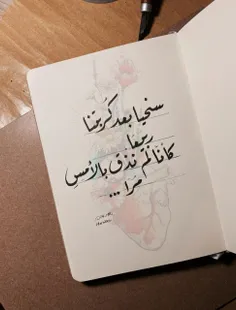 سنحيا بعد كربتنا
ربيعا
كأننا لم نذق بالأمس
مرا ...